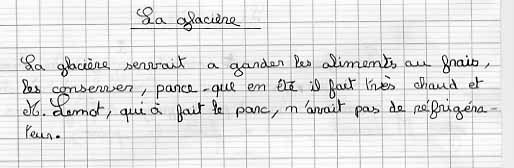 La glacière
La glacière servait a garder les aliments au frais,
les conserver, parce-que en été il fait très chaud et
M. Lemot, qui à fait le parc, n'avait pas de réfrigéra-
teur.